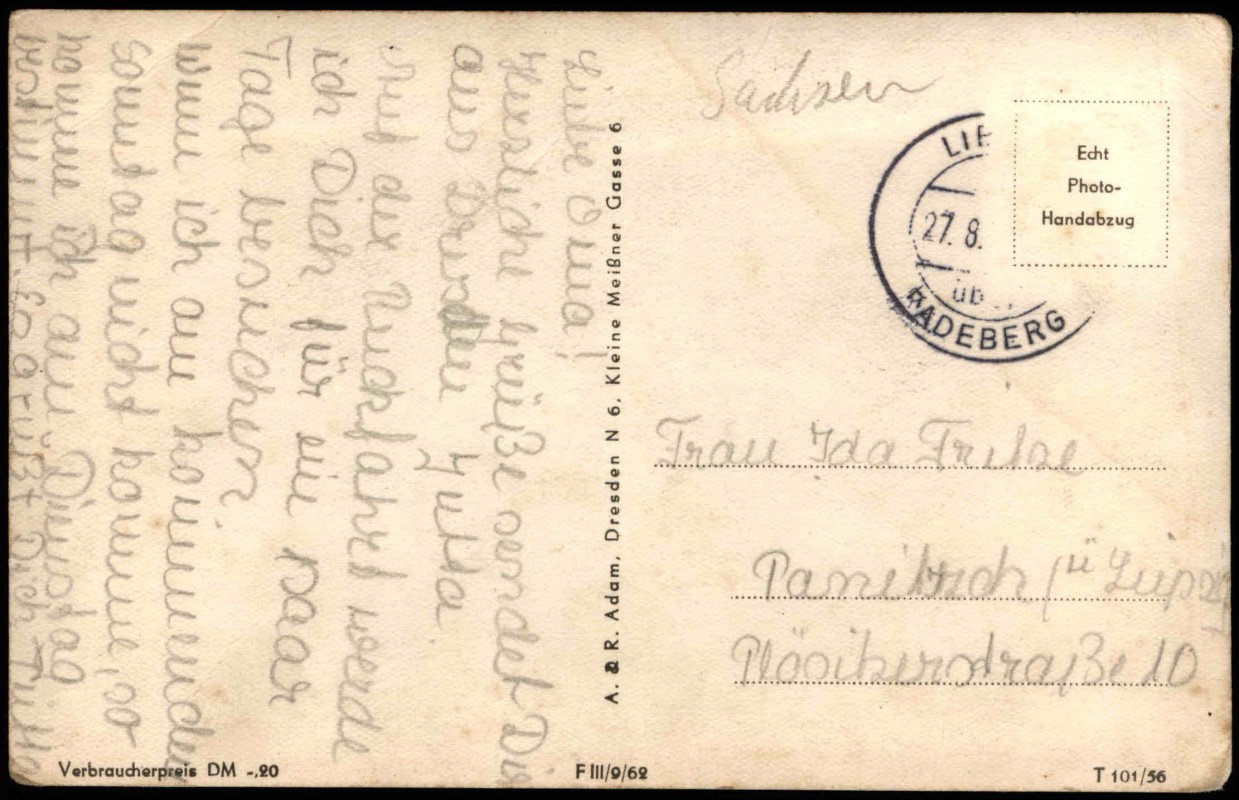 Liebe Oma!
Herzliche Grüße sendet Dir
aus Dresden Jutta
Auf der Rückfahrt werde
ich Dich für ein paar
Tage besuchen
wenn ich am kommenden
Sonntag nicht komme, so
komme ich am Dienstag
bestimmt. Es grüßt Dich Jutta
A. & R. Adam, Dresden N 6, Kleine Meißner Gasse 6
Sachsen
LIE
27. 8.
üb
RADEBERG
Echt
Photo-
Handabzug
Frau Ida
Panitzsch / ü Leipzig
Plösitzerstraße 10
Verbraucherpreis DM -,20
F III/9/62
T 101/56